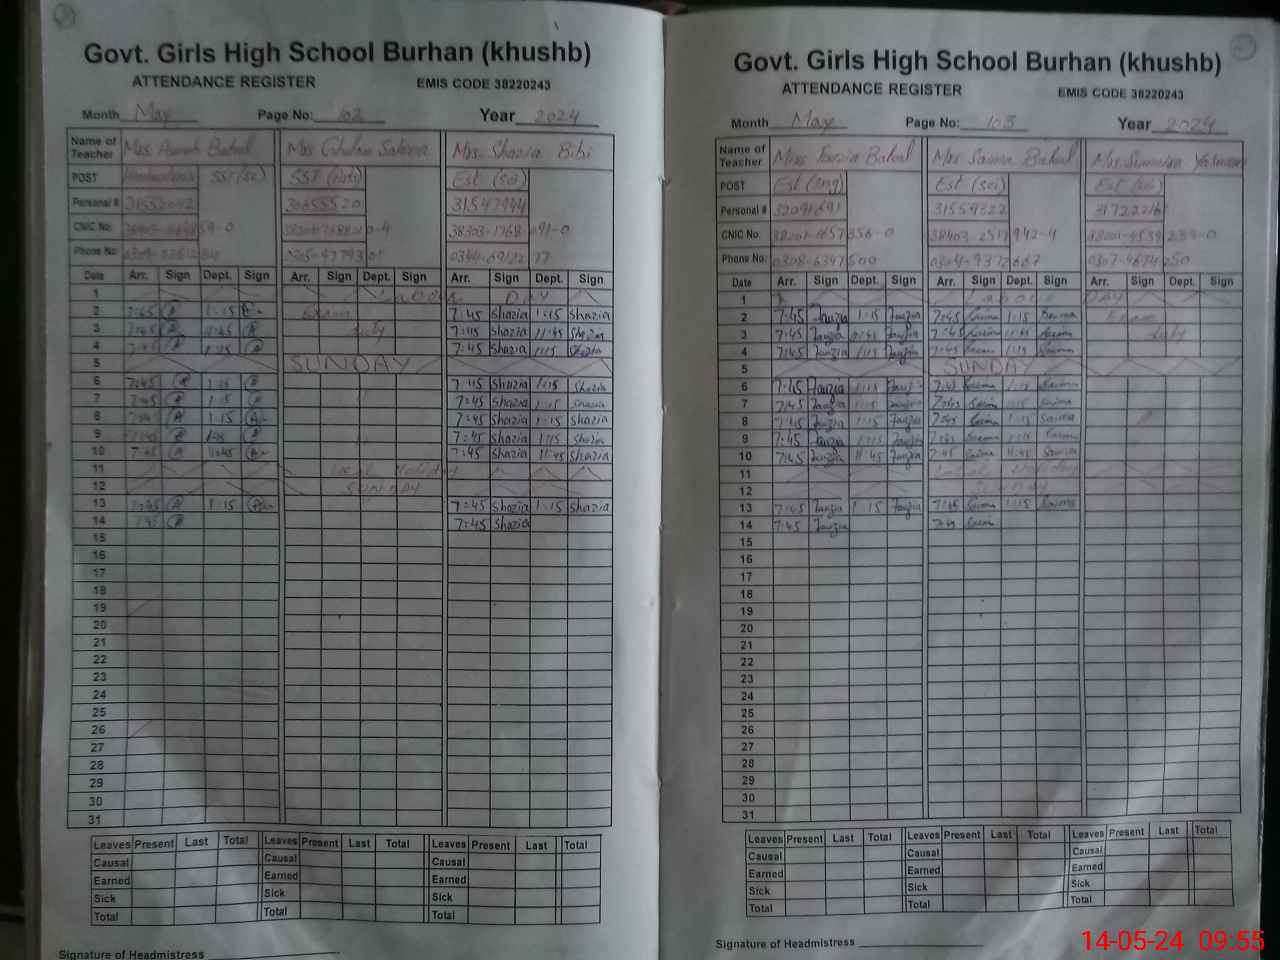 Govt. Girls High School Burhan (khushb)
ATTENDANCE REGISTER EMIS CODE 38220243
Month May Page No: 102 Year 2024
Name of Teacher Mrs Batool Mrs Ghulam Sakina Mrs. Shazia Bibi
POST Headmistress SST (sc) SST (arts) Est (sci)
Personal # 31547944
CNIC No: 38303-1768 091-0
Phone No: 0344-69122 77
Date Arr. Sign Dept. Sign Arr. Sign Dept. Sign Arr. Sign Dept. Sign
1 Labour DAY
2 7:45 1:15 Exam 7:45 Shazia 1:15 Shazia
3 7:45 11:45 duty 7:45 Shazia 11:45 Shazia
4 7:45 1:15 7:45 Shazia 1:15 Shazia
5 SUNDAY
6 7:45 1:15 7:45 Shazia 1:15 Shazia
7 7:45 1:15 7:45 Shazia 1:15 Shazia
8 7:45 1:15 7:45 Shazia 1:15 Shazia
9 7:45 1:15 7:45 Shazia 1:15 Shazia
10 7:45 11:45 7:45 Shazia 11:45 Shazia
11 Local Holiday
12 SUNDAY
13 7:45 1:15 7:45 Shazia 1:15 Shazia
14 7:45 7:45 Shazia
15
16
17
18
19
20
21
22
23
24
25
26
27
28
29
30
31
Leaves Present Last Total Leaves Present Last Total Leaves Present Last Total
Causal Causal Causal
Earned Earned Earned
Sick Sick Sick
Total Total Total
Signature of Headmistress
Govt. Girls High School Burhan (khushb)
ATTENDANCE REGISTER EMIS CODE 38220243
Month May Page No: 103 Year 2024
Name of Teacher Miss Fouzia Batool Mrs Saima Batool Mrs Sumaira
POST Est (eng) Est (sci) Est (sci)
Personal # 32091691 31559322
CNIC No: 38403-2517 942-4
Phone No: 0308-6347 500 0304-9372 667 0307-4674 250
Date Arr. Sign Dept. Sign Arr. Sign Dept. Sign Arr. Sign Dept. Sign
1 Labour DAY
2 7:45 Fauzia 1:15 Fauzia 7:45 Saima 1:15 Saima Exam
3 7:45 Fauzia 11:45 Fauzia 7:45 Saima 11:45 Saima duty
4 7:45 Fauzia 1:15 Fauzia 7:45 Saima 1:15 Saima
5 SUNDAY
6 7:45 Fauzia 1:15 Fauzia 7:45 Saima 1:15 Saima
7 7:45 Fauzia 1:15 Fauzia 7:45 Saima 1:15 Saima
8 7:45 Fauzia 1:15 Fauzia 7:45 Saima 1:15 Saima
9 7:45 Fauzia 1:15 Fauzia 7:45 Saima 1:15 Saima
10 7:45 Fauzia 11:45 Fauzia 7:45 Saima 11:45 Saima
11 Local Holiday
12 SUNDAY
13 7:45 Fauzia 1:15 Fauzia 7:45 Saima 1:15 Saima
14 7:45 Fauzia 7:45 Saima
15
16
17
18
19
20
21
22
23
24
25
26
27
28
29
30
31
Leaves Present Last Total Leaves Present Last Total Leaves Present Last Total
Causal Causal Causal
Earned Earned Earned
Sick Sick Sick
Total Total Total
Signature of Headmistress
14-05-24 09:55